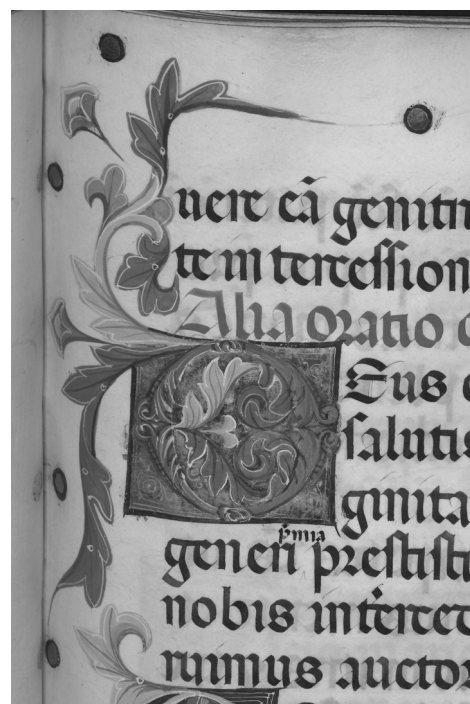 uere eā genitri
te in tercession
Alia oratio d
Eus
salutis
ginita
p̄mia
generi prestisti
nobis interced
ruimus auctor